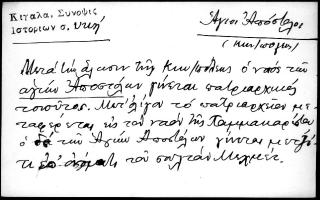 Κιγάλα, Σύνοψις
Ἱστοριῶν σ.
Ἅγιοι Ἀπόστολοι
(Κων/πόλεως)
Μετὰ τὴν ἅλωσιν τῆς Κων/πόλεως ὁ ναὸς τῶν
ἁγίων Ἀποστόλων γίνεται πατριαρχικὸς
τοιοῦτος. Μετ' ὀλίγον τὸ πατριαρχεῖον με-
ταφέρεται εἰς τὸν ναὸν τῆς Παμμακαρίστου
ὁ δὲ τῶν Ἁγίων Ἀποστόλων γίνεται μετζί-
τι ἐπ' ὀνόματι τοῦ σουλτὰν Μεχμέτ.